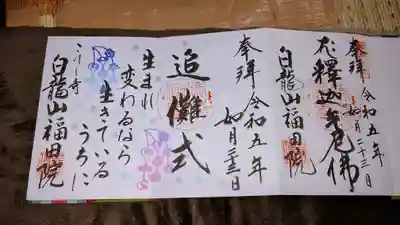 奉拝 令和五年
如月二十三日
釋迦牟尼佛
白龍山福田院
奉拝 令和五年
如月二十三日
追儺式
生まれ
変わるなら
生きている
うちに
白龍山福田院